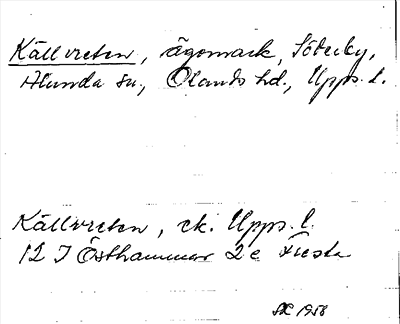 Källvreten, ägomark, Söderby,
Alunda sn., Olands hd., Upps. l.
Källvreten, ek. Upps. l.
12 I Östhammar 2e Fiesta
1958